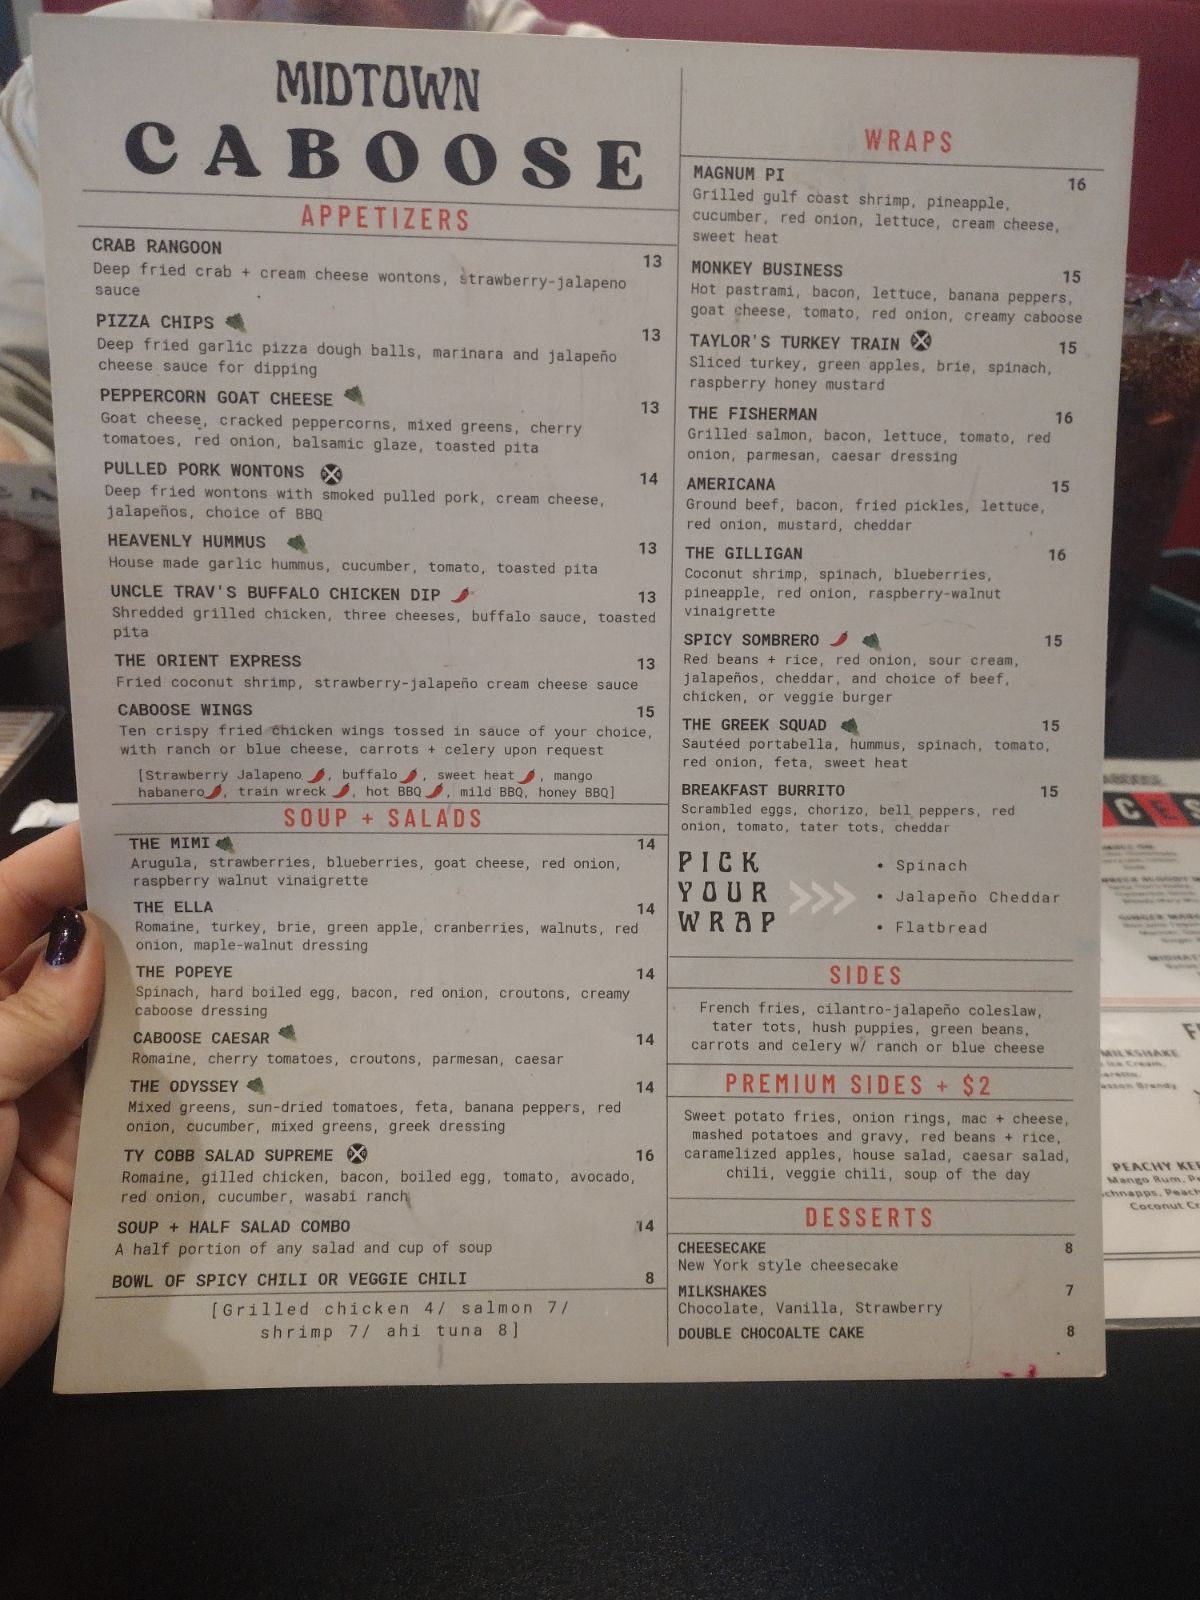 MIDTOWN
CABOOSE
APPETIZERS
CRAB RANGOON 13
Deep fried crab + cream cheese wontons, strawberry-jalapeno
sauce
PIZZA CHIPS 13
Deep fried garlic pizza dough balls, marinara and jalapeño
cheese sauce for dipping
PEPPERCORN GOAT CHEESE 13
Goat cheese, cracked peppercorns, mixed greens, cherry
tomatoes, red onion, balsamic glaze, toasted pita
PULLED PORK WONTONS 14
Deep fried wontons with smoked pulled pork, cream cheese,
jalapeños, choice of BBQ
HEAVENLY HUMMUS 13
House made garlic hummus, cucumber, tomato, toasted pita
UNCLE TRAV'S BUFFALO CHICKEN DIP 13
Shredded grilled chicken, three cheeses, buffalo sauce, toasted
pita
THE ORIENT EXPRESS 13
Fried coconut shrimp, strawberry-jalapeño cream cheese sauce
CABOOSE WINGS 15
Ten crispy fried chicken wings tossed in sauce of your choice,
with ranch or blue cheese, carrots + celery upon request
[Strawberry Jalapeno, buffalo, sweet heat, mango
habanero, train wreck, hot BBQ, mild BBQ, honey BBQ]
SOUP + SALADS
THE MIMI 14
Arugula, strawberries, blueberries, goat cheese, red onion,
raspberry walnut vinaigrette
THE ELLA 14
Romaine, turkey, brie, green apple, cranberries, walnuts, red
onion, maple-walnut dressing
THE POPEYE 14
Spinach, hard boiled egg, bacon, red onion, croutons, creamy
caboose dressing
CABOOSE CAESAR 14
Romaine, cherry tomatoes, croutons, parmesan, caesar
THE ODYSSEY 14
Mixed greens, sun-dried tomatoes, feta, banana peppers, red
onion, cucumber, mixed greens, greek dressing
TY COBB SALAD SUPREME 16
Romaine, gilled chicken, bacon, boiled egg, tomato, avocado,
red onion, cucumber, wasabi ranch
SOUP + HALF SALAD COMBO 14
A half portion of any salad and cup of soup
BOWL OF SPICY CHILI OR VEGGIE CHILI 8
[Grilled chicken 4/ salmon 7/
shrimp 7/ ahi tuna 8]
WRAPS
MAGNUM PI 16
Grilled gulf coast shrimp, pineapple,
cucumber, red onion, lettuce, cream cheese,
sweet heat
MONKEY BUSINESS 15
Hot pastrami, bacon, lettuce, banana peppers,
goat cheese, tomato, red onion, creamy caboose
TAYLOR'S TURKEY TRAIN 15
Sliced turkey, green apples, brie, spinach,
raspberry honey mustard
THE FISHERMAN 16
Grilled salmon, bacon, lettuce, tomato, red
onion, parmesan, caesar dressing
AMERICANA 15
Ground beef, bacon, fried pickles, lettuce,
red onion, mustard, cheddar
THE GILLIGAN 16
Coconut shrimp, spinach, blueberries,
pineapple, red onion, raspberry-walnut
vinaigrette
SPICY SOMBRERO 15
Red beans + rice, red onion, sour cream,
jalapeños, cheddar, and choice of beef,
chicken, or veggie burger
THE GREEK SQUAD 15
Sautéed portabella, hummus, spinach, tomato,
red onion, feta, sweet heat
BREAKFAST BURRITO 15
Scrambled eggs, chorizo, bell peppers, red
onion, tomato, tater tots, cheddar
PICK
YOUR
WRAP
• Spinach
• Jalapeño Cheddar
• Flatbread
SIDES
French fries, cilantro-jalapeño coleslaw,
tater tots, hush puppies, green beans,
carrots and celery w/ ranch or blue cheese
PREMIUM SIDES + $2
Sweet potato fries, onion rings, mac + cheese,
mashed potatoes and gravy, red beans + rice,
caramelized apples, house salad, caesar salad,
chili, veggie chili, soup of the day
DESSERTS
CHEESECAKE 8
New York style cheesecake
MILKSHAKES 7
Chocolate, Vanilla, Strawberry
DOUBLE CHOCOALTE CAKE 8
MILKSHAKE
Ice Cream,
Brandy
Mango Rum,
Coconut